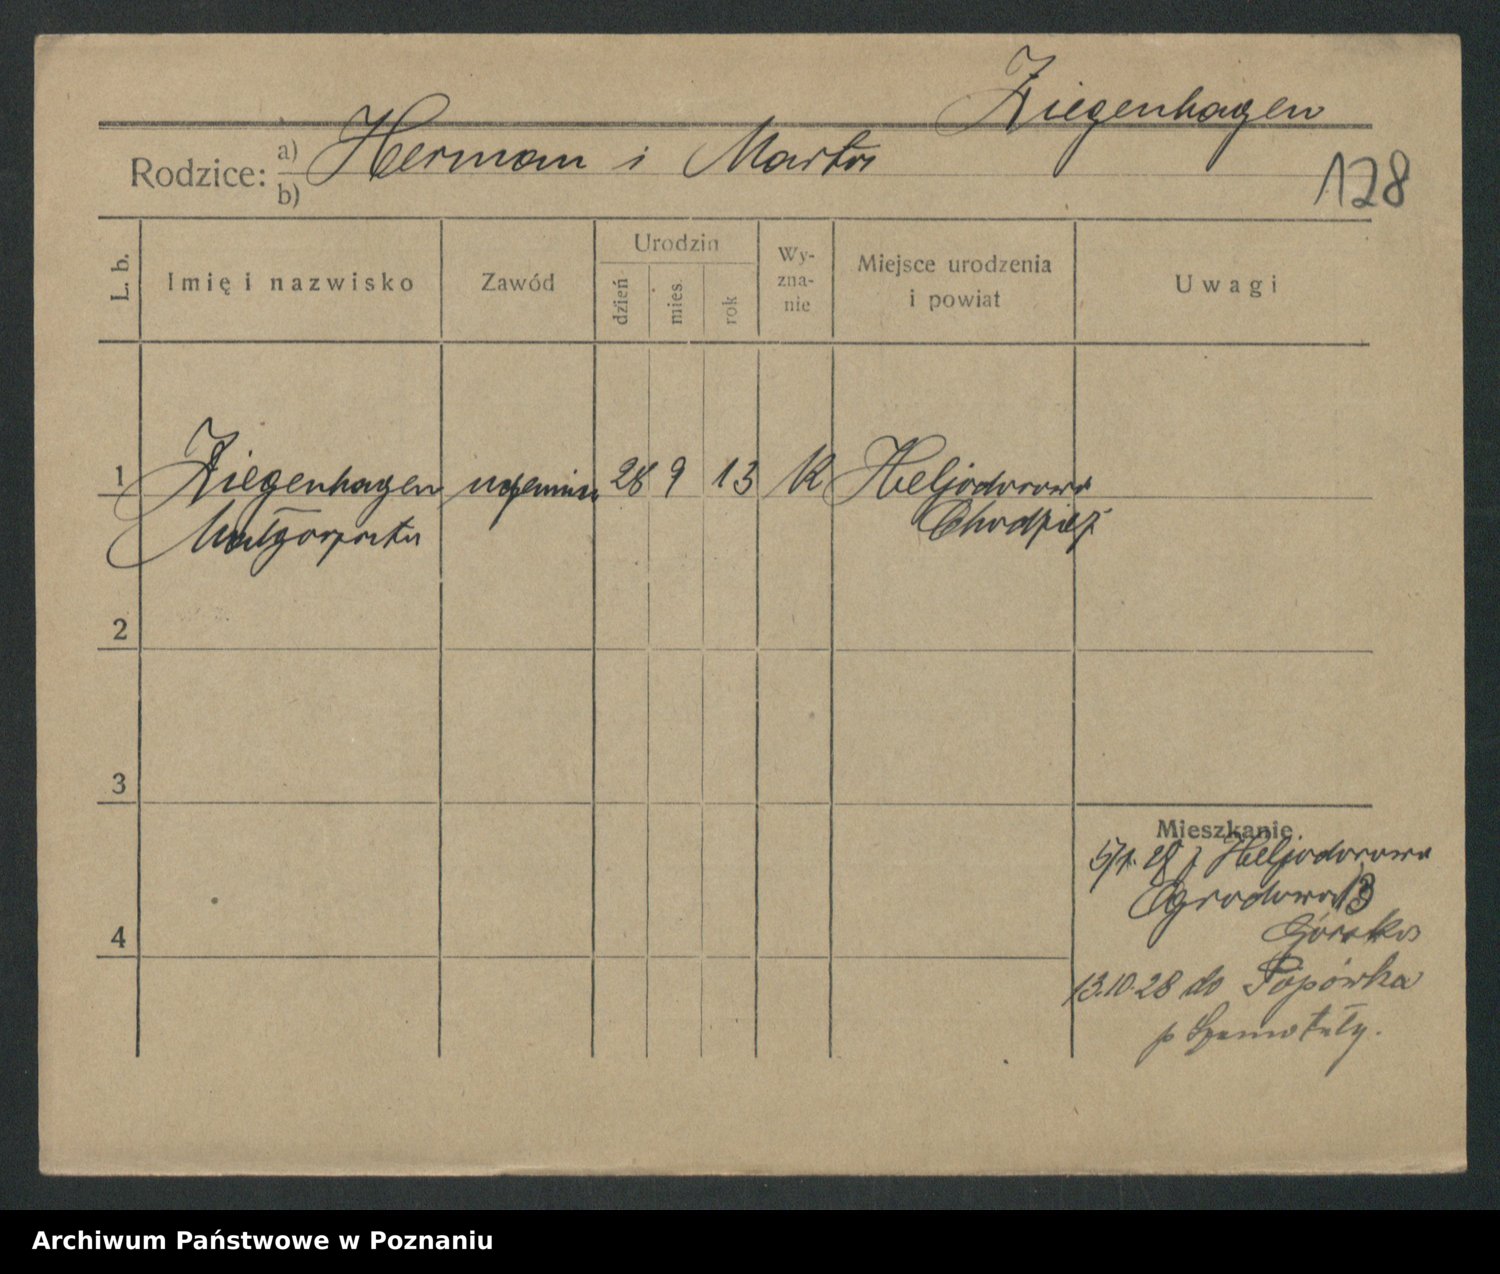 Ziegenhagen
Rodzice: a) Herman i Marta
b)
128
L. b.
Imię i nazwisko
Zawód
Urodzin
dzień
mies.
rok
Wy-
zna-
nie
Miejsce urodzenia
i powiat
Uwagi
1 Ziegenhagen uczennica 28 9 13 K Heljodorowo
Małgorzata Chodzież
2
3
4
Mieszkanie.
5/1. 28 z Heljodorowa
Ogrodowa 13
Górska
13.10.28 do Popówka
p Szamotuły.
Archiwum Państwowe w Poznaniu